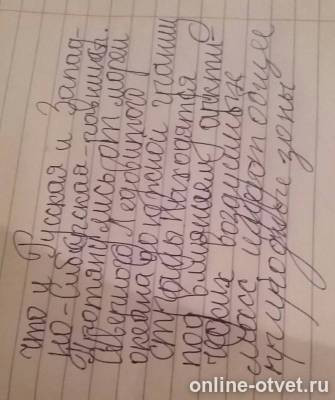 что и Русская и Запад-
но-Сибирская равнина.
Протянулись от морей
Северного Ледовитого
океана до южной границ
страны Находятся
под влиянием аркти-
ческих воздушных
масс имеют общие
природные зоны
online-otvet.ru